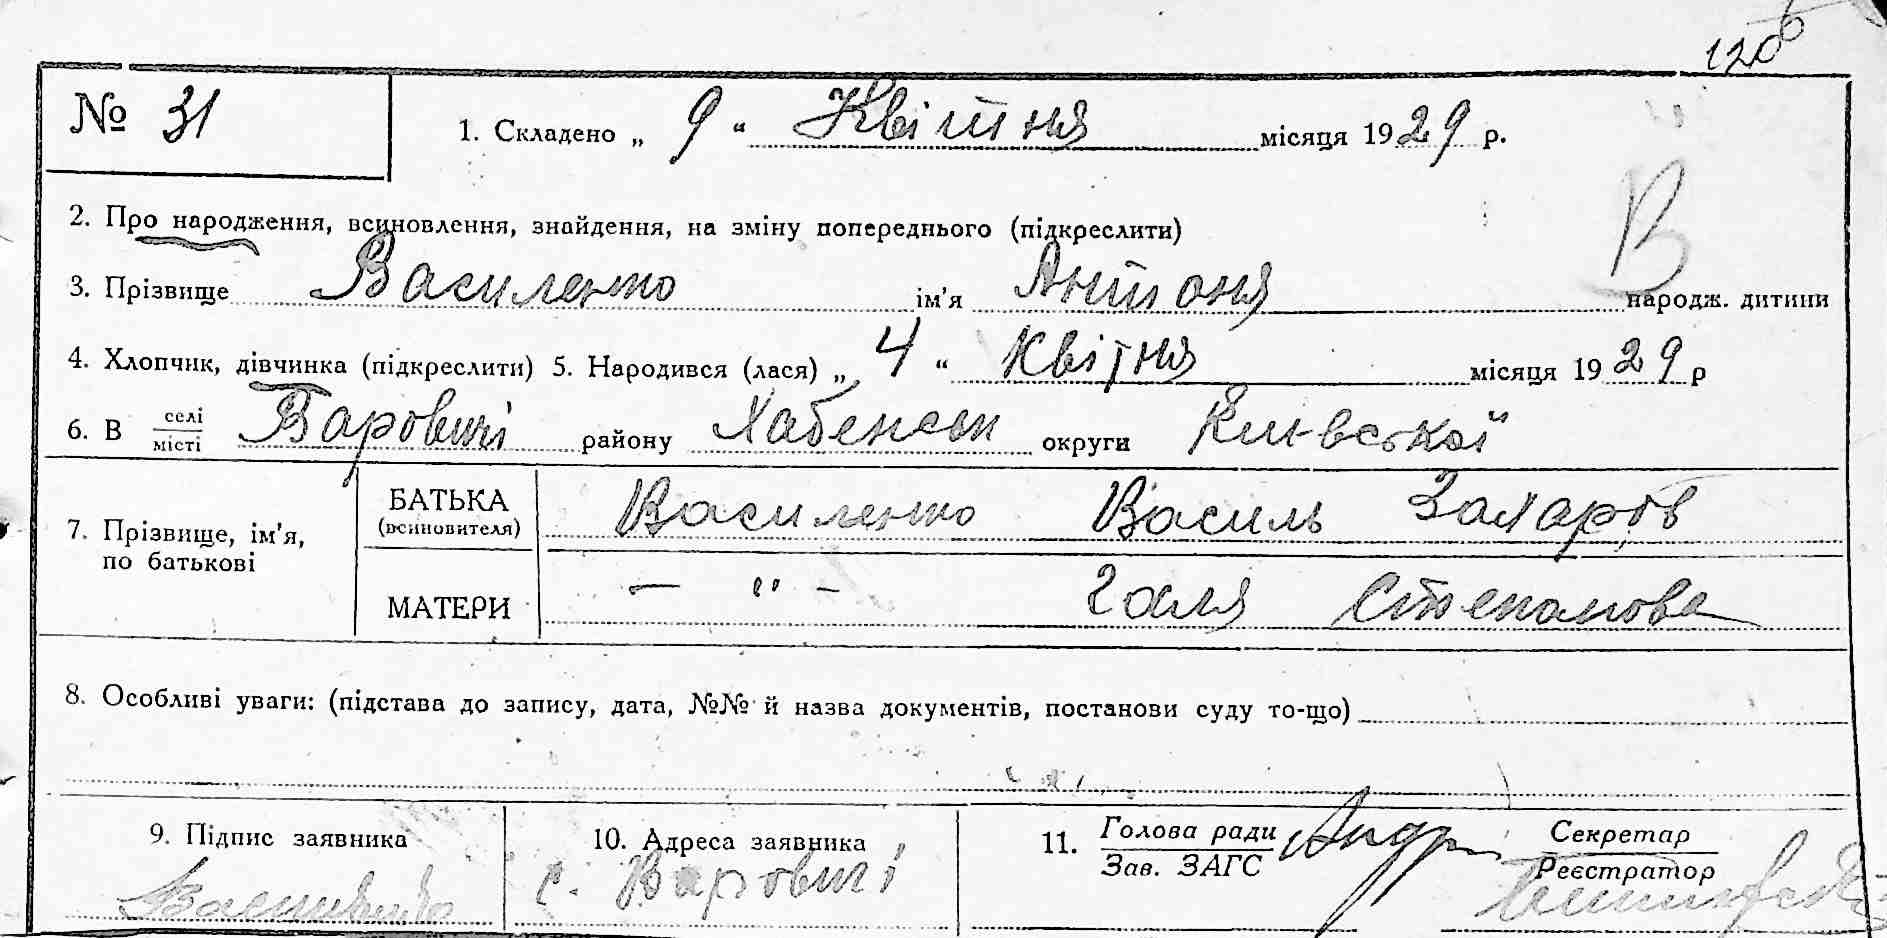 120
№ 31
1. Складено „ 9 “ Квітня місяця 1929 р.
2. Про народження, всиновлення, знайдення, на зміну попереднього (підкреслити)
В
3. Прізвище Василенко ім’я Антоня народж. дитини
4. Хлопчик, дівчинка (підкреслити) 5. Народився (лася) „ 4 “ Квітня місяця 1929 р
6. В селі місті Варовичі району Хабенськ округи Київської
7. Прізвище, ім’я, по батькові
БАТЬКА (всиновителя) Василенко Василь Захаров
МАТЕРИ — " — Галя Степанова
8. Особливі уваги: (підстава до запису, дата, №№ й назва документів, постанови суду то-що)
9. Підпис заявника
Василенко
10. Адреса заявника
с. Варовичі
11. Голова ради
Зав. ЗАГС
Секретар
Реєстратор